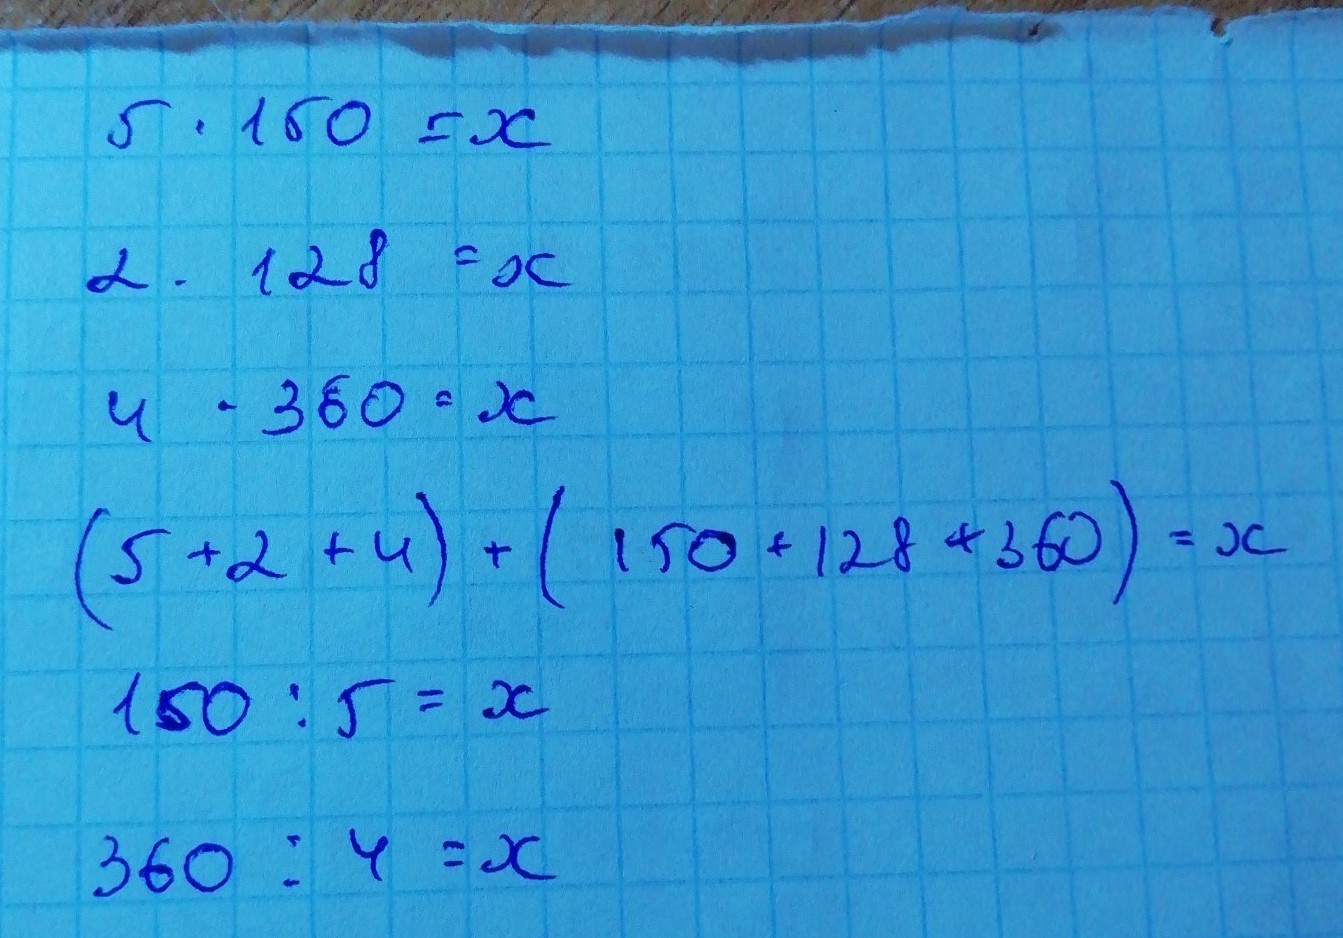 5 · 150 = x
2 · 128 = x
4 · 360 = x
(5 + 2 + 4) + (150 + 128 + 360) = x
150 : 5 = x
360 : 4 = x